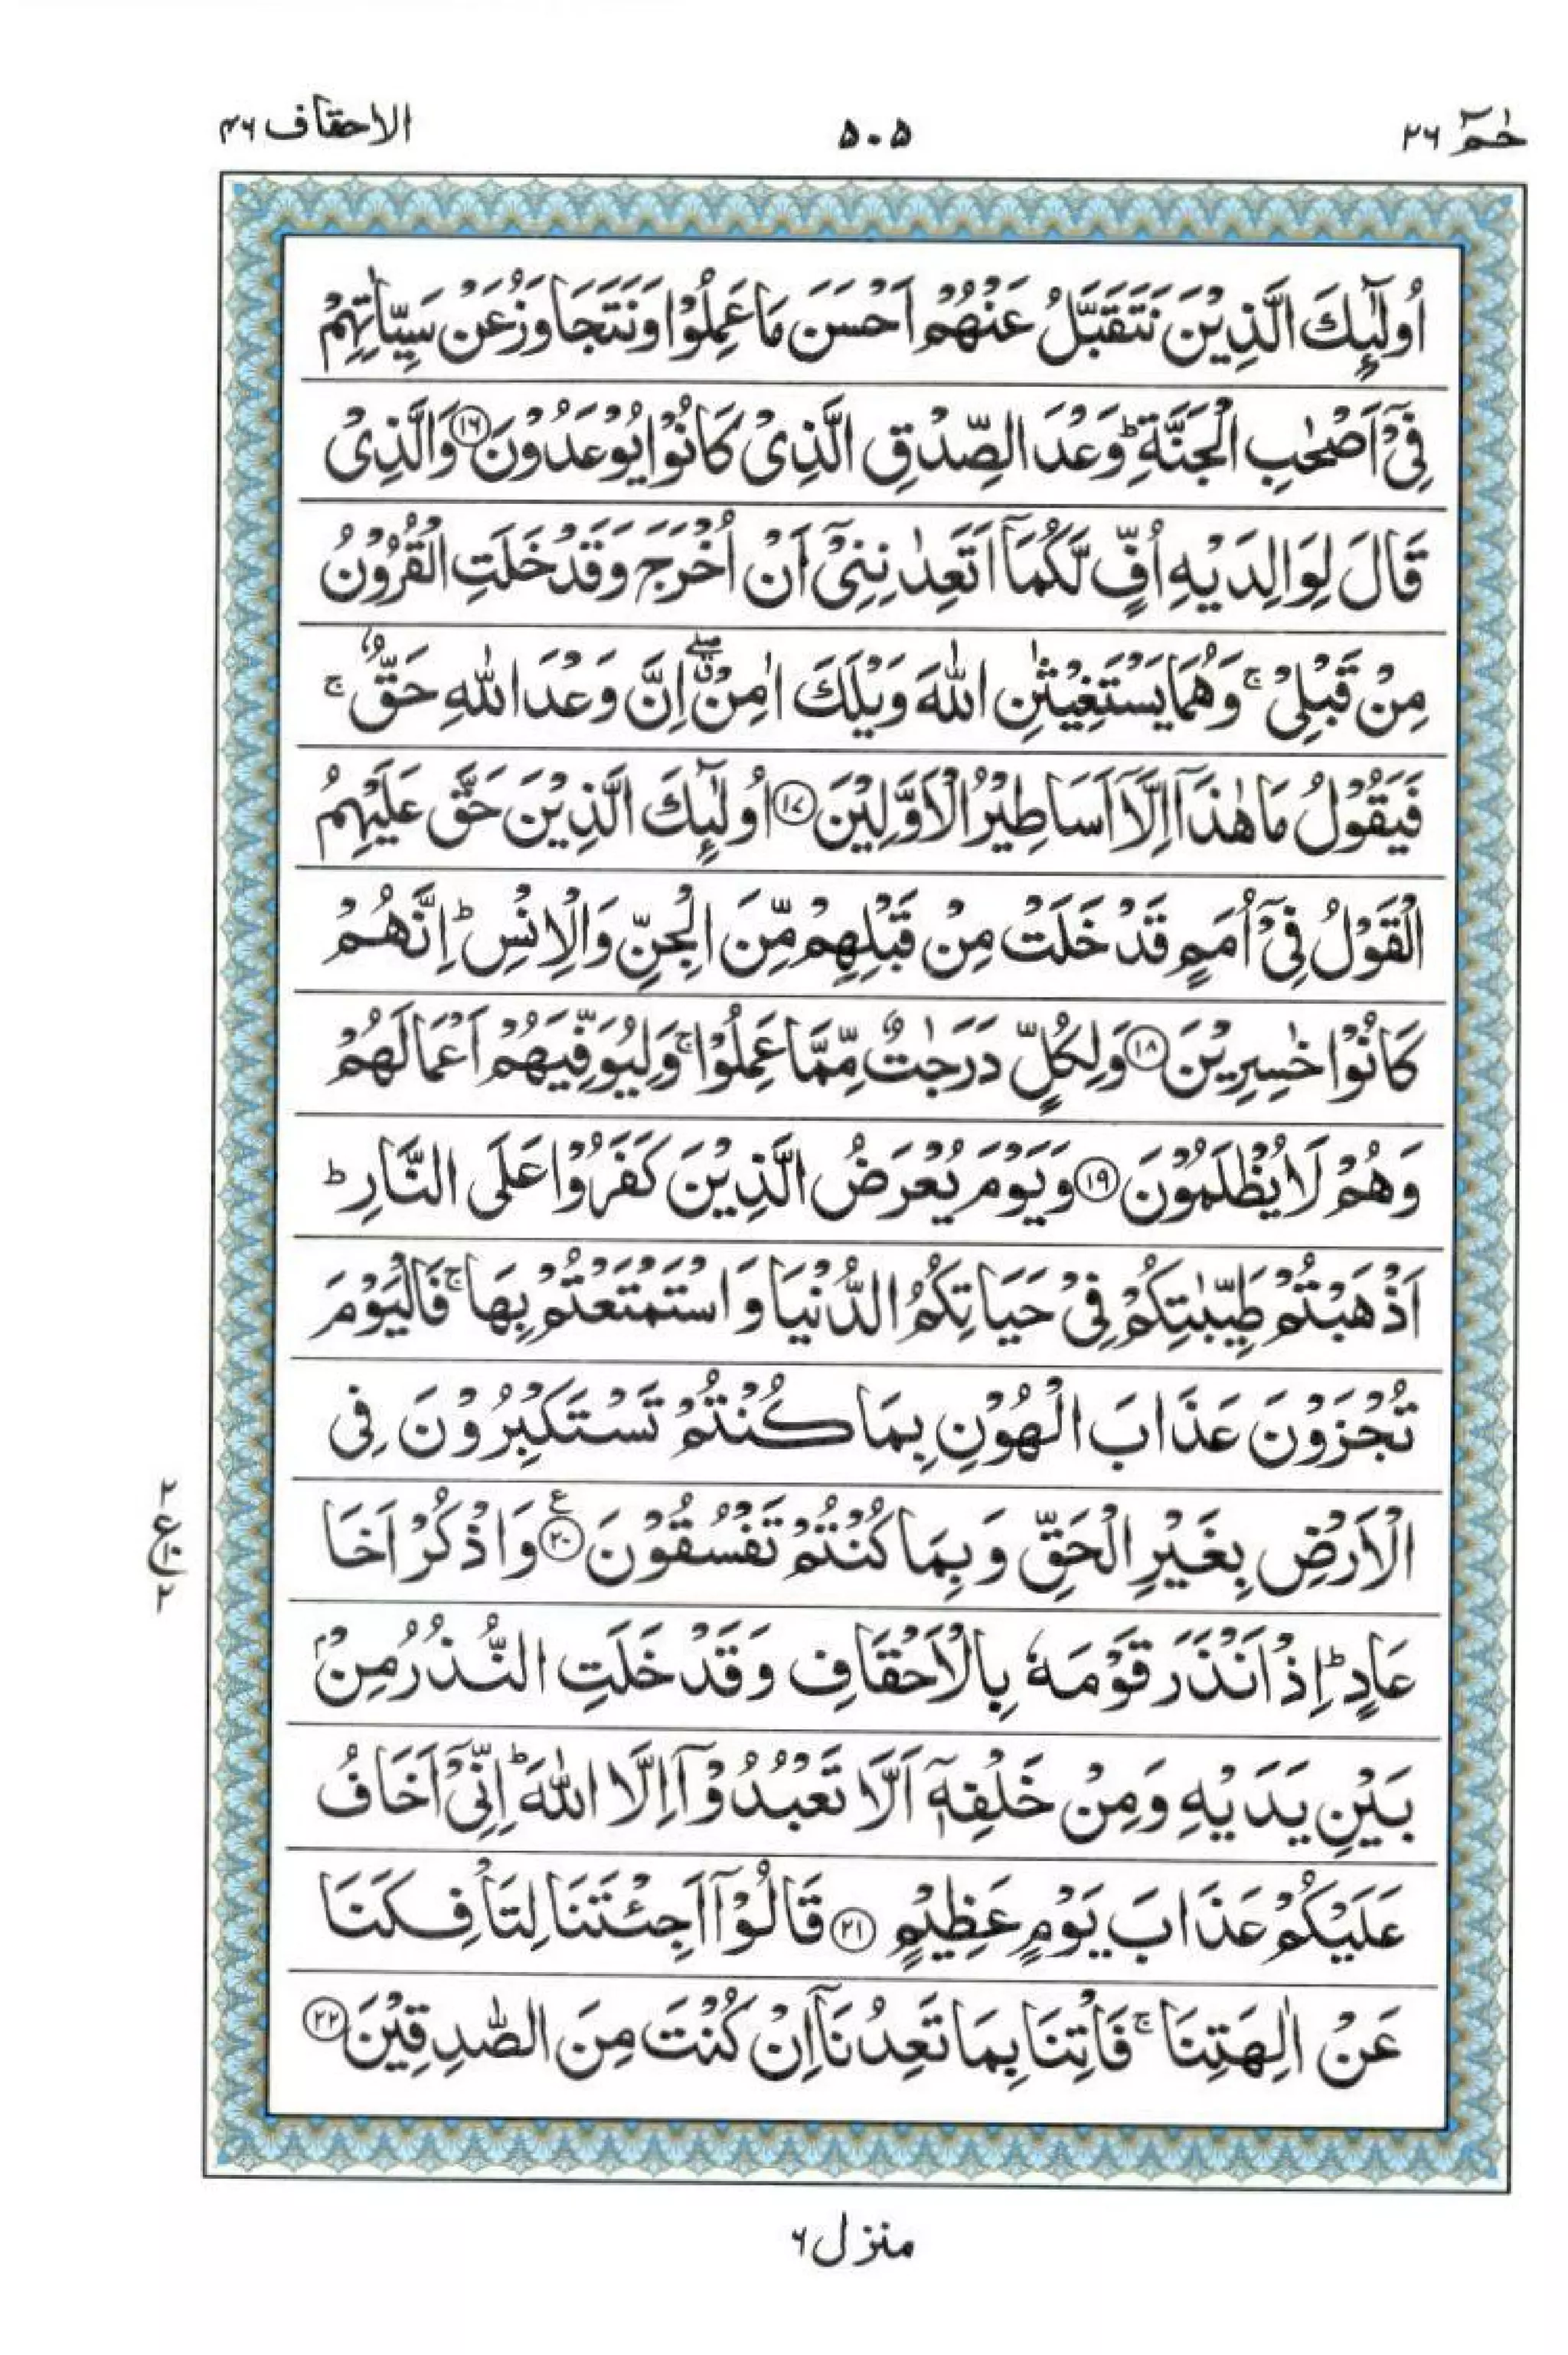 حٰمٓ ۲۶
۵۰۵
الاحقاف ۴۶
اُولٰٓئِكَ الَّذِيْنَ نَتَقَبَّلُ عَنْهُمْ اَحْسَنَ مَا عَمِلُوْا وَنَتَجَاوَزُ عَنْ سَيِّاٰتِهِمْ
فِىْٓ اَصْحٰبِ الْجَنَّةِ ؕ وَعْدَ الصِّدْقِ الَّذِىْ كَانُوْا يُوْعَدُوْنَ ۝۱۶ وَالَّذِىْ
قَالَ لِوَالِدَيْهِ اُفٍّ لَّكُمَاۤ اَتَعِدٰنِنِىْٓ اَنْ اُخْرَجَ وَقَدْ خَلَتِ الْقُرُوْنُ
مِنْ قَبْلِىْ ۚ وَهُمَا يَسْتَغِيْثٰنِ اللّٰهَ وَيْلَكَ اٰمِنْ ۖۗ اِنَّ وَعْدَ اللّٰهِ حَقٌّ ۚ
فَيَقُوْلُ مَا هٰذَاۤ اِلَّاۤ اَسَاطِيْرُ الْاَوَّلِيْنَ ۝۱۷ اُولٰٓئِكَ الَّذِيْنَ حَقَّ عَلَيْهِمُ
الْقَوْلُ فِىْٓ اُمَمٍ قَدْ خَلَتْ مِنْ قَبْلِهِمْ مِّنَ الْجِنِّ وَالْاِنْسِ ؕ اِنَّهُمْ
كَانُوْا خٰسِرِيْنَ ۝۱۸ وَلِكُلٍّ دَرَجٰتٌ مِّمَّا عَمِلُوْا ۚ وَلِيُوَفِّيَهُمْ اَعْمَالَهُمْ
وَهُمْ لَا يُظْلَمُوْنَ ۝۱۹ وَيَوْمَ يُعْرَضُ الَّذِيْنَ كَفَرُوْا عَلَى النَّارِ ؕ
اَذْهَبْتُمْ طَيِّبٰتِكُمْ فِىْ حَيَاتِكُمُ الدُّنْيَا وَاسْتَمْتَعْتُمْ بِهَا ۚ فَالْيَوْمَ
تُجْزَوْنَ عَذَابَ الْهُوْنِ بِمَا كُنْتُمْ تَسْتَكْبِرُوْنَ فِى
الْاَرْضِ بِغَيْرِ الْحَقِّ وَبِمَا كُنْتُمْ تَفْسُقُوْنَ ۝۲۰ ع وَاذْكُرْ اَخَا
۲
ع
۲
عَادٍ ؕ اِذْ اَنْذَرَ قَوْمَهٗ بِالْاَحْقَافِ وَقَدْ خَلَتِ النُّذُرُ مِنْۢ
بَيْنِ يَدَيْهِ وَمِنْ خَلْفِهٖۤ اَلَّا تَعْبُدُوْۤا اِلَّا اللّٰهَ ؕ اِنِّىْٓ اَخَافُ
عَلَيْكُمْ عَذَابَ يَوْمٍ عَظِيْمٍ ۝۲۱ قَالُوْۤا اَجِئْتَنَا لِتَاْفِكَنَا
عَنْ اٰلِهَتِنَا ۚ فَاْتِنَا بِمَا تَعِدُنَاۤ اِنْ كُنْتَ مِنَ الصّٰدِقِيْنَ ۝۲۲
منزل ۶